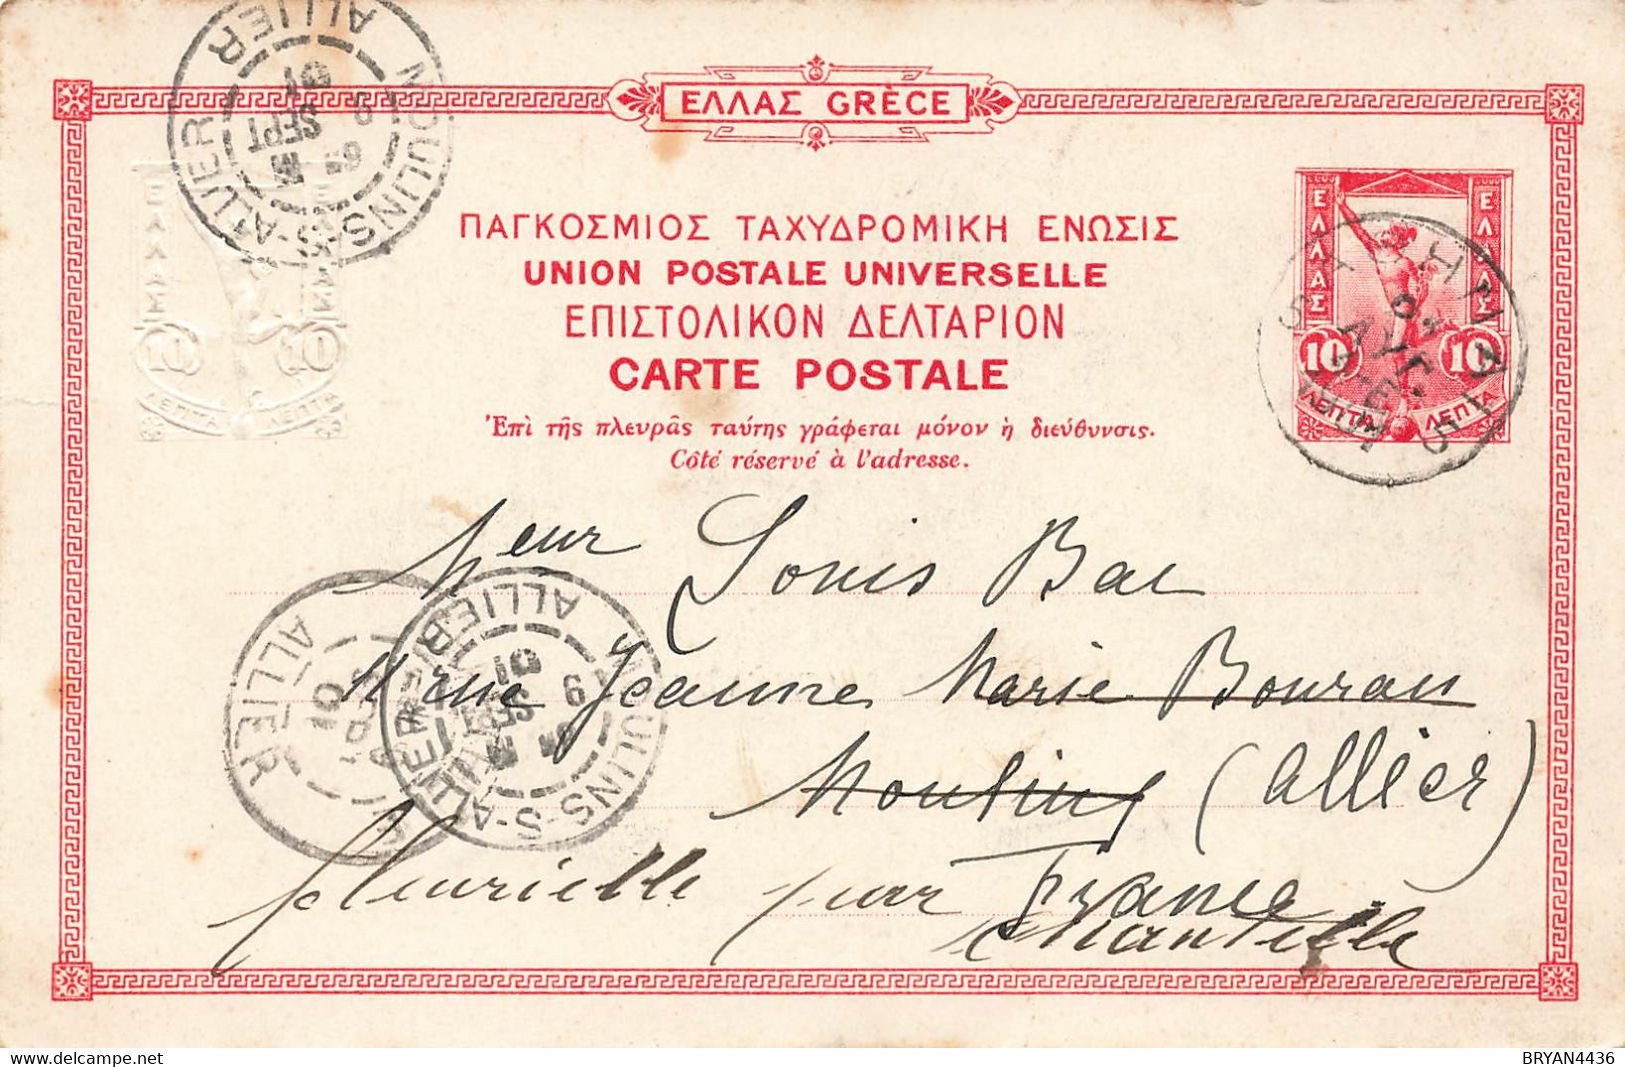 ΕΛΛΑΣ GRÈCE
ΠΑΓΚΟΣΜΙΟΣ ΤΑΧΥΔΡΟΜΙΚΗ ΕΝΩΣΙΣ
UNION POSTALE UNIVERSELLE
ΕΠΙΣΤΟΛΙΚΟΝ ΔΕΛΤΑΡΙΟΝ
CARTE POSTALE
Ἐπὶ τῆς πλευρᾶς ταύτης γράφεται μόνον ἡ διεύθυνσις.
Côté réservé à l'adresse.
ΕΛΛΑΣ ΕΛΛΑΣ
10 10
ΛΕΠΤΑ ΛΕΠΤΑ
ΕΛΛΑΣ ΕΛΛΑΣ
10 10
ΛΕΠΤΑ ΛΕΠΤΑ
MOULINS-S-ALLIER
ALLIER
9
SEPT
01
Meur Louis Bac
11 rue Jeanne Marie Bourau
Moulins (Allier)
France
fleurielle par Chantelle
MOULINS-S-ALLIER
ALLIER
9
SEPT
01
ALLIER
01
ALLIER
ΑΥΓ
BRYAN4436